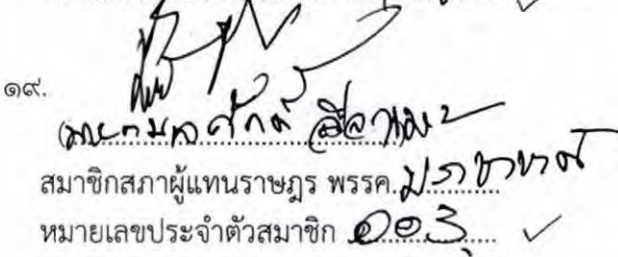 ๑๙.
(นายกมลศักดิ์ ลีวาเมาะ
สมาชิกสภาผู้แทนราษฎร พรรค ประชาชาติ
หมายเลขประจำตัวสมาชิก ๐๐๓